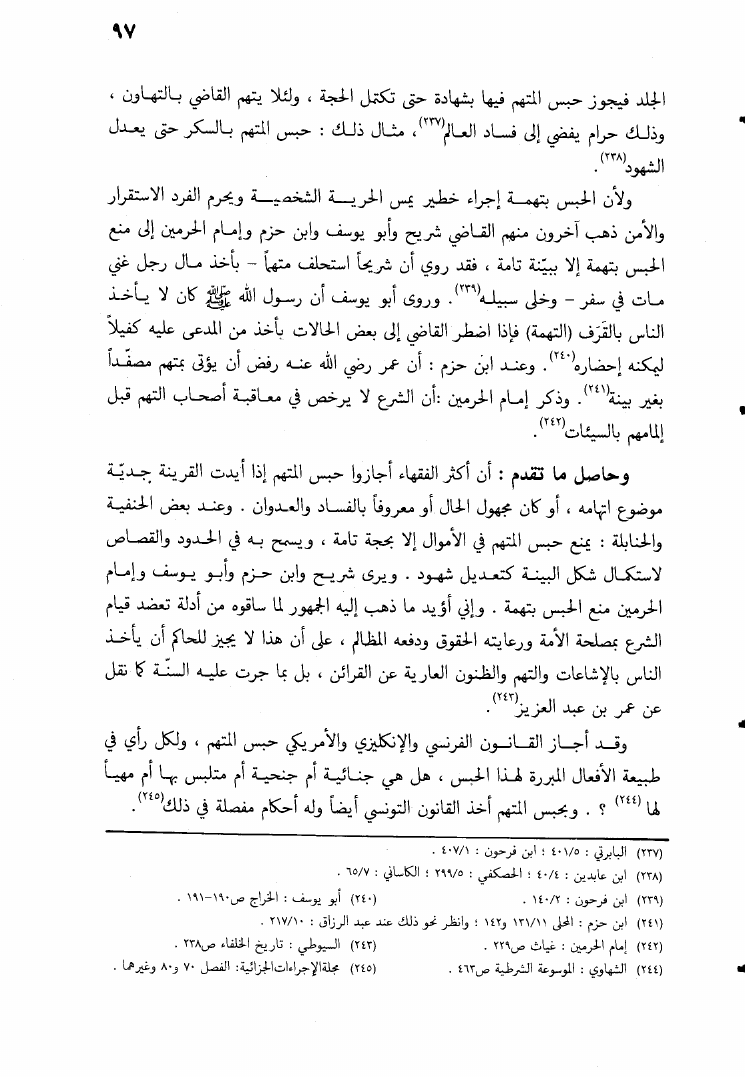 ٩٧
الجلد فيجوز حبس المتهم فيها بشهادة حتى تكتمل الحجة ، ولئلا يتهم القاضي بالتهاون ،
وذلك حرام يفضي إلى فساد العالم(٢٣٧)، مثال ذلك : حبس المتهم بالسكر حتى يعدل
الشهود(٢٣٨).
ولأن الحبس بتهمة إجراء خطير يمس الحرية الشخصية ويحرم الفرد الاستقرار
والأمن ذهب آخرون منهم القاضي شريح وأبو يوسف وابن حزم وإمام الحرمين إلى منع
الحبس بتهمة إلا ببيّنة تامة ، فقد روي أن شريحاً استحلف متهماً - بأخذ مال رجل غني
مات في سفر - وخلى سبيله(٢٣٩). وروى أبو يوسف أن رسول الله ﷺ كان لا يأخذ
الناس بالقَرَف (التهمة) فإذا اضطر القاضي إلى بعض الحالات يأخذ من المدعى عليه كفيلاً
ليمكنه إحضاره(٢٤٠). وعند ابن حزم : أن عمر رضي الله عنه رفض أن يؤتى بمتهم مصفّداً
بغير بينة(٢٤١). وذكر إمام الحرمين :أن الشرع لا يرخص في معاقبة أصحاب التهم قبل
إلمامهم بالسيئات(٢٤٢).
وحاصل ما تقدم : أن أكثر الفقهاء أجازوا حبس المتهم إذا أيدت القرينة جديّة
موضوع اتهامه ، أو كان مجهول الحال أو معروفاً بالفساد والعدوان . وعند بعض الحنفية
والحنابلة : يمنع حبس المتهم في الأموال إلا بحجة تامة ، ويسمح به في الحدود والقصاص
لاستكمال شكل البينة كتعديل شهود . ويرى شريح وابن حزم وأبو يوسف وإمام
الحرمين منع الحبس بتهمة . وإني أؤيد ما ذهب إليه الجمهور لما ساقوه من أدلة تعضد قيام
الشرع بمصلحة الأمة ورعايته الحقوق ودفعه المظالم ، على أن هذا لا يجيز للحاكم أن يأخذ
الناس بالإشاعات والتهم والظنون العارية عن القرائن ، بل بما جرت عليه السنّة كما نقل
عن عمر بن عبد العزيز(٢٤٣).
وقد أجاز القانون الفرنسي والإنكليزي والأمريكي حبس المتهم ، ولكل رأي في
طبيعة الأفعال المبررة لهذا الحبس ، هل هي جنائية أم جنحية أم متلبس بها أم مهيأ
لها (٢٤٤) ؟ . وبحبس المتهم أخذ القانون التونسي أيضاً وله أحكام مفصلة في ذلك(٢٤٥).
(٢٣٧) البابرتي : ٤٠١/٥ ؛ ابن فرحون : ٤٠٧/١ .
(٢٣٨) ابن عابدين : ٤٠/٤ ؛ الحصكفي : ٢٩٩/٥ ؛ الكاساني : ٦٥/٧ .
(٢٣٩) ابن فرحون : ١٤٠/٢ . (٢٤٠) أبو يوسف : الخراج ص١٩٠-١٩١ .
(٢٤١) ابن حزم : المحلى ١٣١/١١ و١٤٢ ؛ وانظر نحو ذلك عند عبد الرزاق : ٢١٧/١٠ .
(٢٤٢) إمام الحرمين : غياث ص٢٢٩ . (٢٤٣) السيوطي : تاريخ الخلفاء ص٢٣٨ .
(٢٤٤) الشهاوي : الموسوعة الشرطية ص٤٦٣ . (٢٤٥) مجلة الإجراءات الجزائية: الفصل ٧٠ و٨٠ وغيرهما .